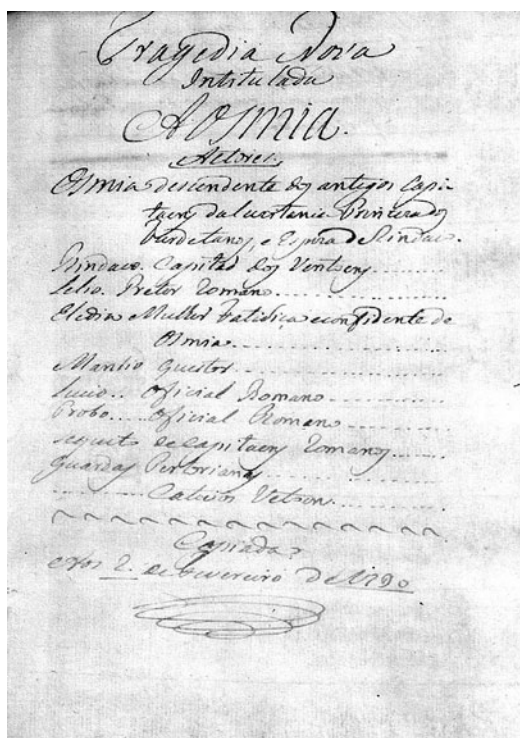 Tragedia Nova
Intitulada
A OSMIA.
Actores,
Osmia descendente dos antigos Capi-
taens da Luzitania Princeza dos
Turdetanos, e Espoza de Rindaco.
Rindaco. Capitaõ dos Vetoens
Lelio. Pretor Romano
Eledia Mulher Fatidica e confidente de
Osmia
Manlio Questor
Lucio.. Oficial Romano
Probo.... Oficial Romano
sequito de Capitaens Romanos
Guardas Pretorianas
Vetoen
Copiada
Aos 2. de Fevereiro de 1790